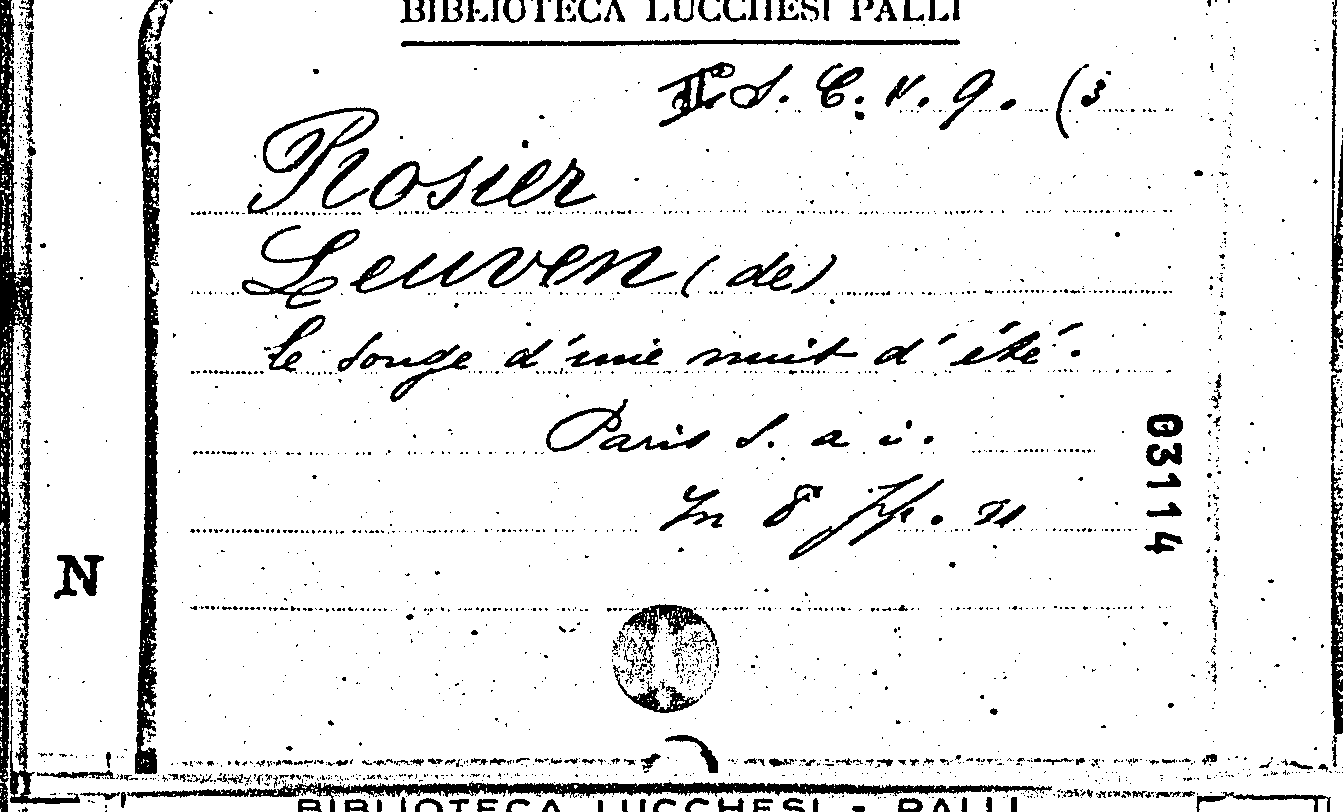 BIBLIOTECA LUCCHESI PALLI
S. C. V. 9. (3
Rosier
Leuven (de)
le songe d'une nuit d'été.
Paris S. a i.
In 8 pp.
03114
N
BIBLIOTECA LUCCHESI - PALLI